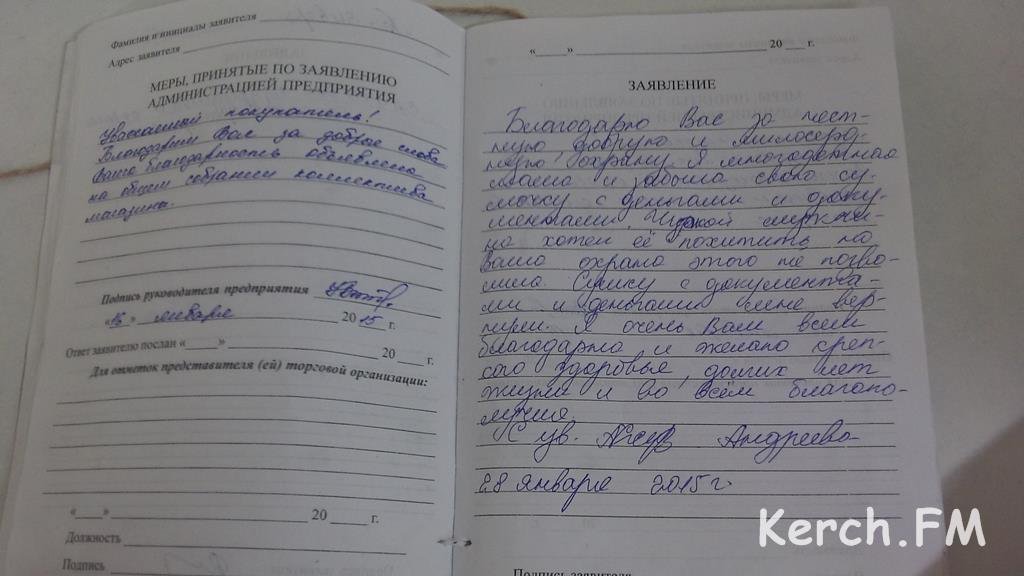 Фамилия и инициалы заявителя
Адрес заявителя
МЕРЫ, ПРИНЯТЫЕ ПО ЗАЯВЛЕНИЮ
АДМИНИСТРАЦИЕЙ ПРЕДПРИЯТИЯ
Уважаемый покупатель!
Благодарим Вас за добрые слова
Ваша благодарность объявлена
на общем собрании коллектива
магазина.
Подпись руководителя предприятия
«16» января 20 15 г.
Ответ заявителю послан «____» 20 ___ г.
Для отметок представителя (ей) торговой организации:
«____» 20 ____ г.
Должность
Подпись
«____» 20 ___ г.
ЗАЯВЛЕНИЕ
Благодарю Вас за чест-
ную, добрую и милосерд-
ную охрану. Я многодетная
мама и забыла свою су-
мочку с деньгами и доку-
ментами. Чужой мужчи-
на хотел её похитить но
Ваша охрана этого не позво-
лила. Сумку с документа-
ми и деньгами мне вер-
нули. Я очень Вам всем
благодарна и желаю креп-
кого здоровья, долгих лет
жизни и во всём благопо-
лучия.
С ув. Андреева
28 января 2015 г.
Подпись заявителя
Kerch.FM